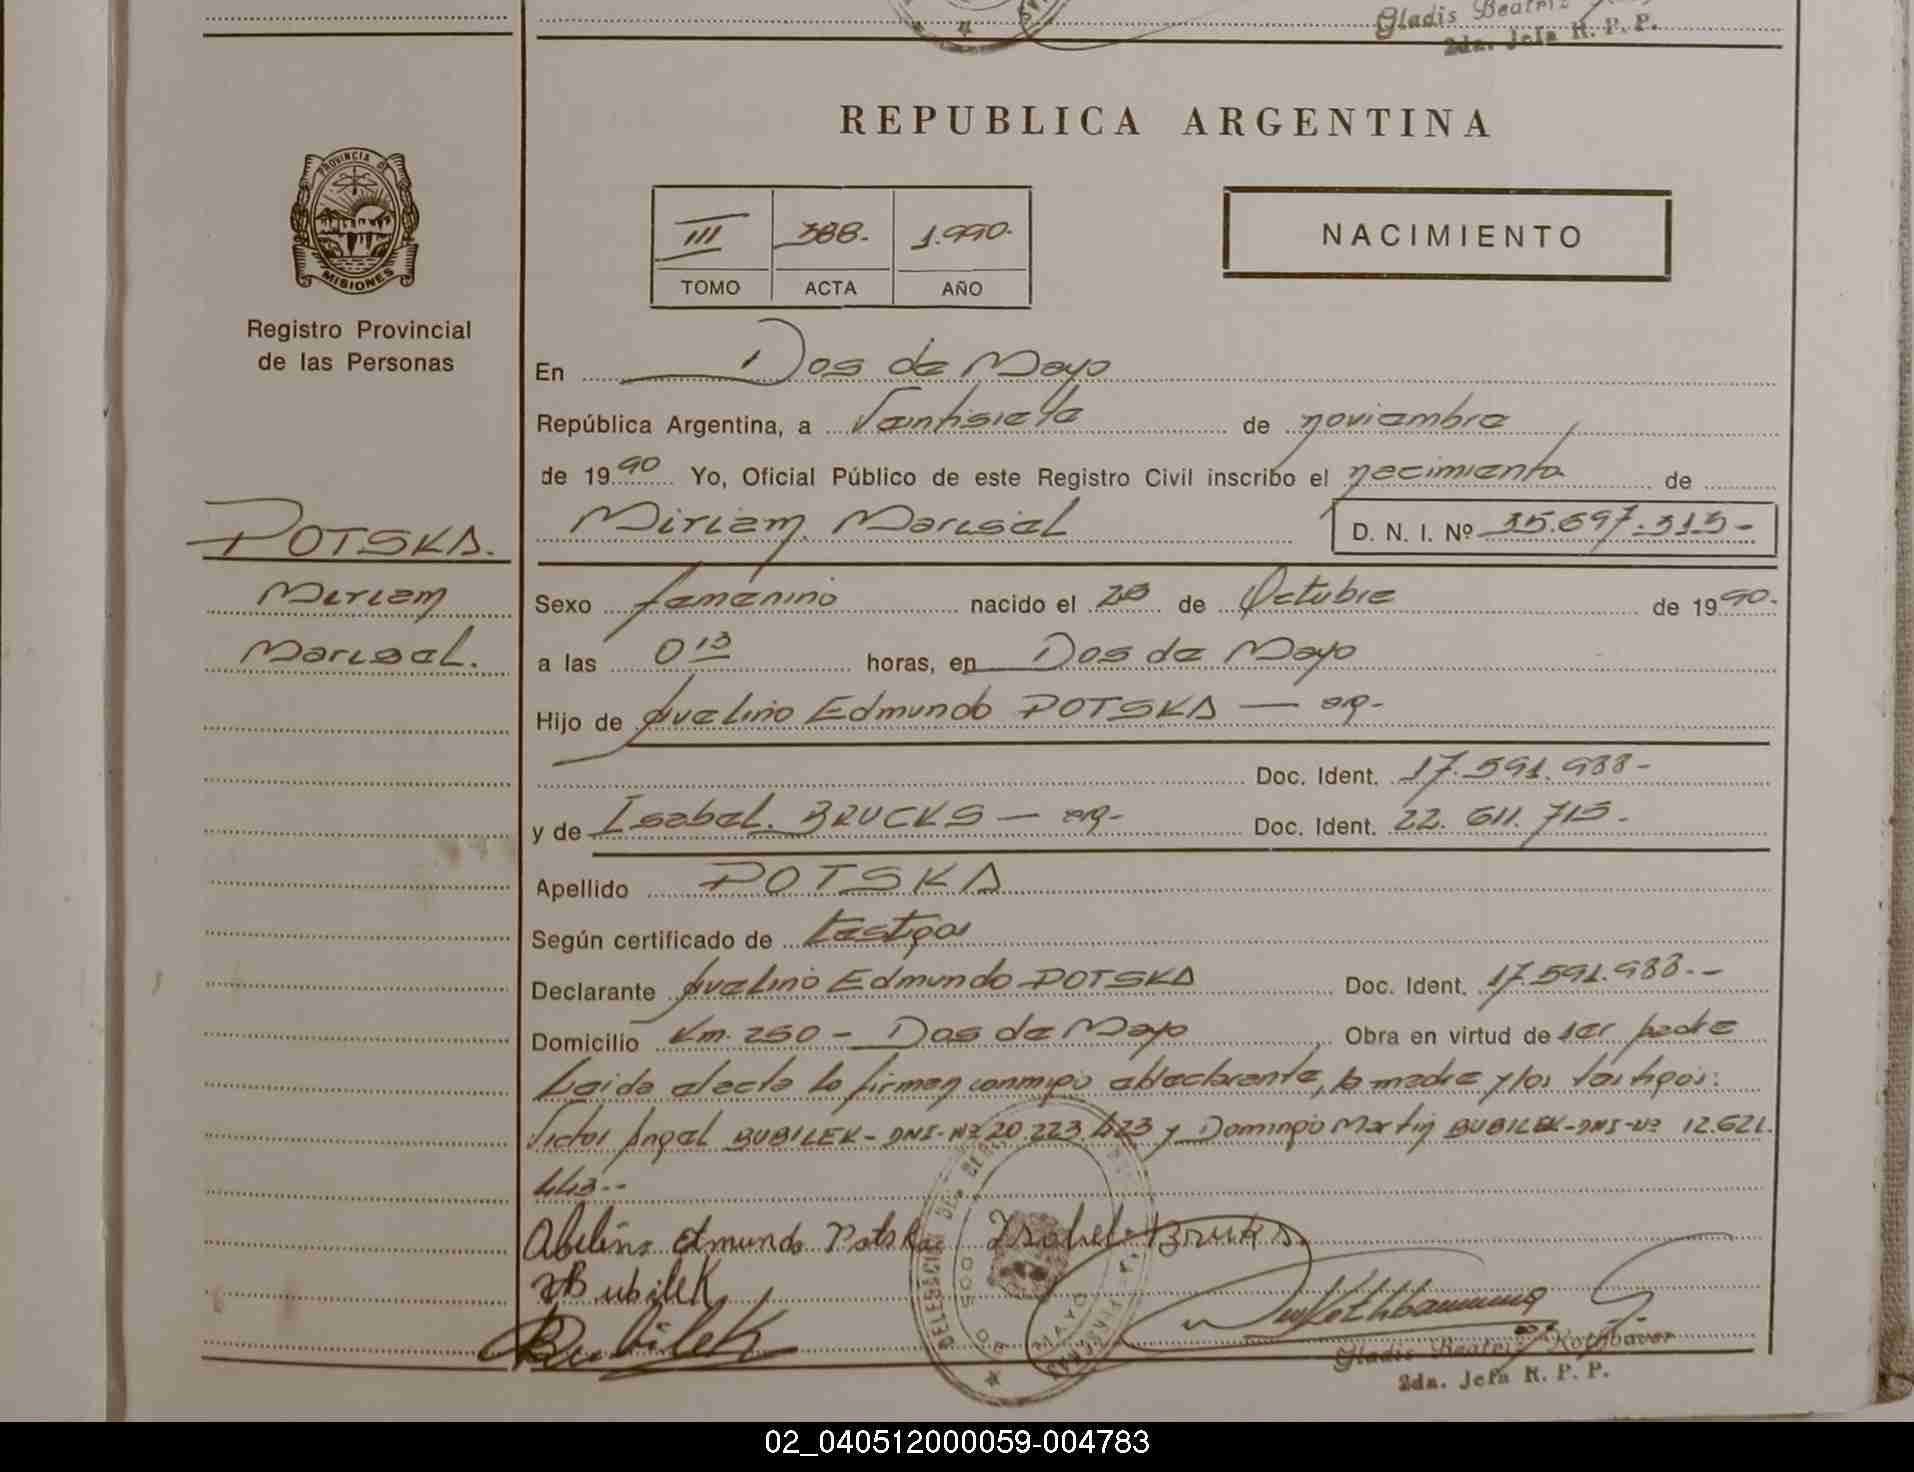 Gladis Beatriz
2da. Jefa R. P. P.
REPUBLICA ARGENTINA
PROVINCIA DE
MISIONES
III 388.- 1.990.-
TOMO ACTA AÑO
NACIMIENTO
Registro Provincial
de las Personas
POTSKA.
Miriam
Marisel.
En Dos de Mayo
República Argentina, a Veintisiete de noviembre
de 1990 Yo, Oficial Público de este Registro Civil inscribo el nacimiento de
Miriam Marisel D. N. I. Nº 35.697.315-
Sexo femenino nacido el de Octubre de 1990.-
a las 0 13 horas, en Dos de Mayo
Hijo de Avelino Edmundo POTSKA — arg.-
Doc. Ident. 17.591.988-
y de Isabel. BRUCKS — arg.- Doc. Ident. 22.611.715.-
Apellido POTSKA
Según certificado de testigos
Declarante Avelino Edmundo POTSKA Doc. Ident. 17.591.988.--
Domicilio Km. 250 - Dos de Mayo Obra en virtud de ser padre
Leida el acta la firman conmigo el declarante, la madre y los testigos:
Victor Angel BUBILEK - DNI-Nº 20.223.423 y Domingo Martin BUBILEK-DNI-Nº 12.621.
443--
Abelino Edmundo Potska Isabel Bruks
Bubilek
Bubilek
DOS DE MAYO
Gladis Beatriz Rothbauer
2da. Jefa R. P. P.
02_040512000059-004783